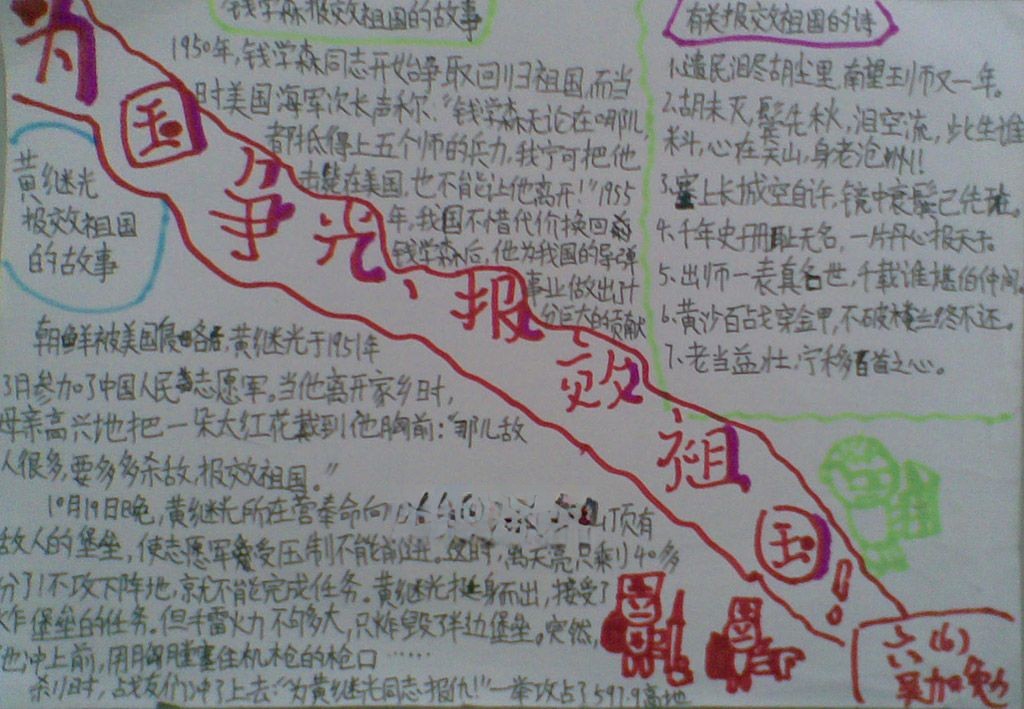 为国争光，报效祖国！
钱学森报效祖国的故事
1950年，钱学森同志开始争取回归祖国，而当
时美国海军次长声称：“钱学森无论在哪儿，
都抵得上五个师的兵力，我宁可把他
击毙在美国，也不能让他离开！”1955
年，我国不惜代价换回
钱学森后，他为我国的导弹
事业做出了十
分巨大的贡献
有关报效祖国的诗
1.遗民泪尽胡尘里，南望王师又一年。
2.胡未灭，鬓先秋，泪空流，此生谁
料，心在天山，身老沧州！
3.塞上长城空自许，镜中衰鬓已先斑。
4.千年史册耻无名，一片丹心报天子。
5.出师一表真名世，千载谁堪伯仲间。
6.黄沙百战穿金甲，不破楼兰终不还。
7.老当益壮，宁移白首之心。
黄继光
报效祖国
的故事
朝鲜被美国侵略后，黄继光于1951年
3月参加了中国人民志愿军。当他离开家乡时，
母亲高兴地把一朵大红花戴到他胸前：“那儿敌
人很多，要多多杀敌，报效祖国。”
10月19日晚，黄继光所在营奉命向 山顶有
敌人的堡垒，使志愿军受压制不能前进。这时，离天亮只剩40多
分了！不攻下阵地，就不能完成任务。黄继光挺身而出，接受了
炸堡垒的任务。但手雷火力不够大，只炸毁了半边堡垒。突然，
他冲上前，用胸膛塞住机枪的枪口……
刹时，战友们冲了上去：“为黄继光同志报仇！”一举攻占了597.9高地
六(6)
吴加